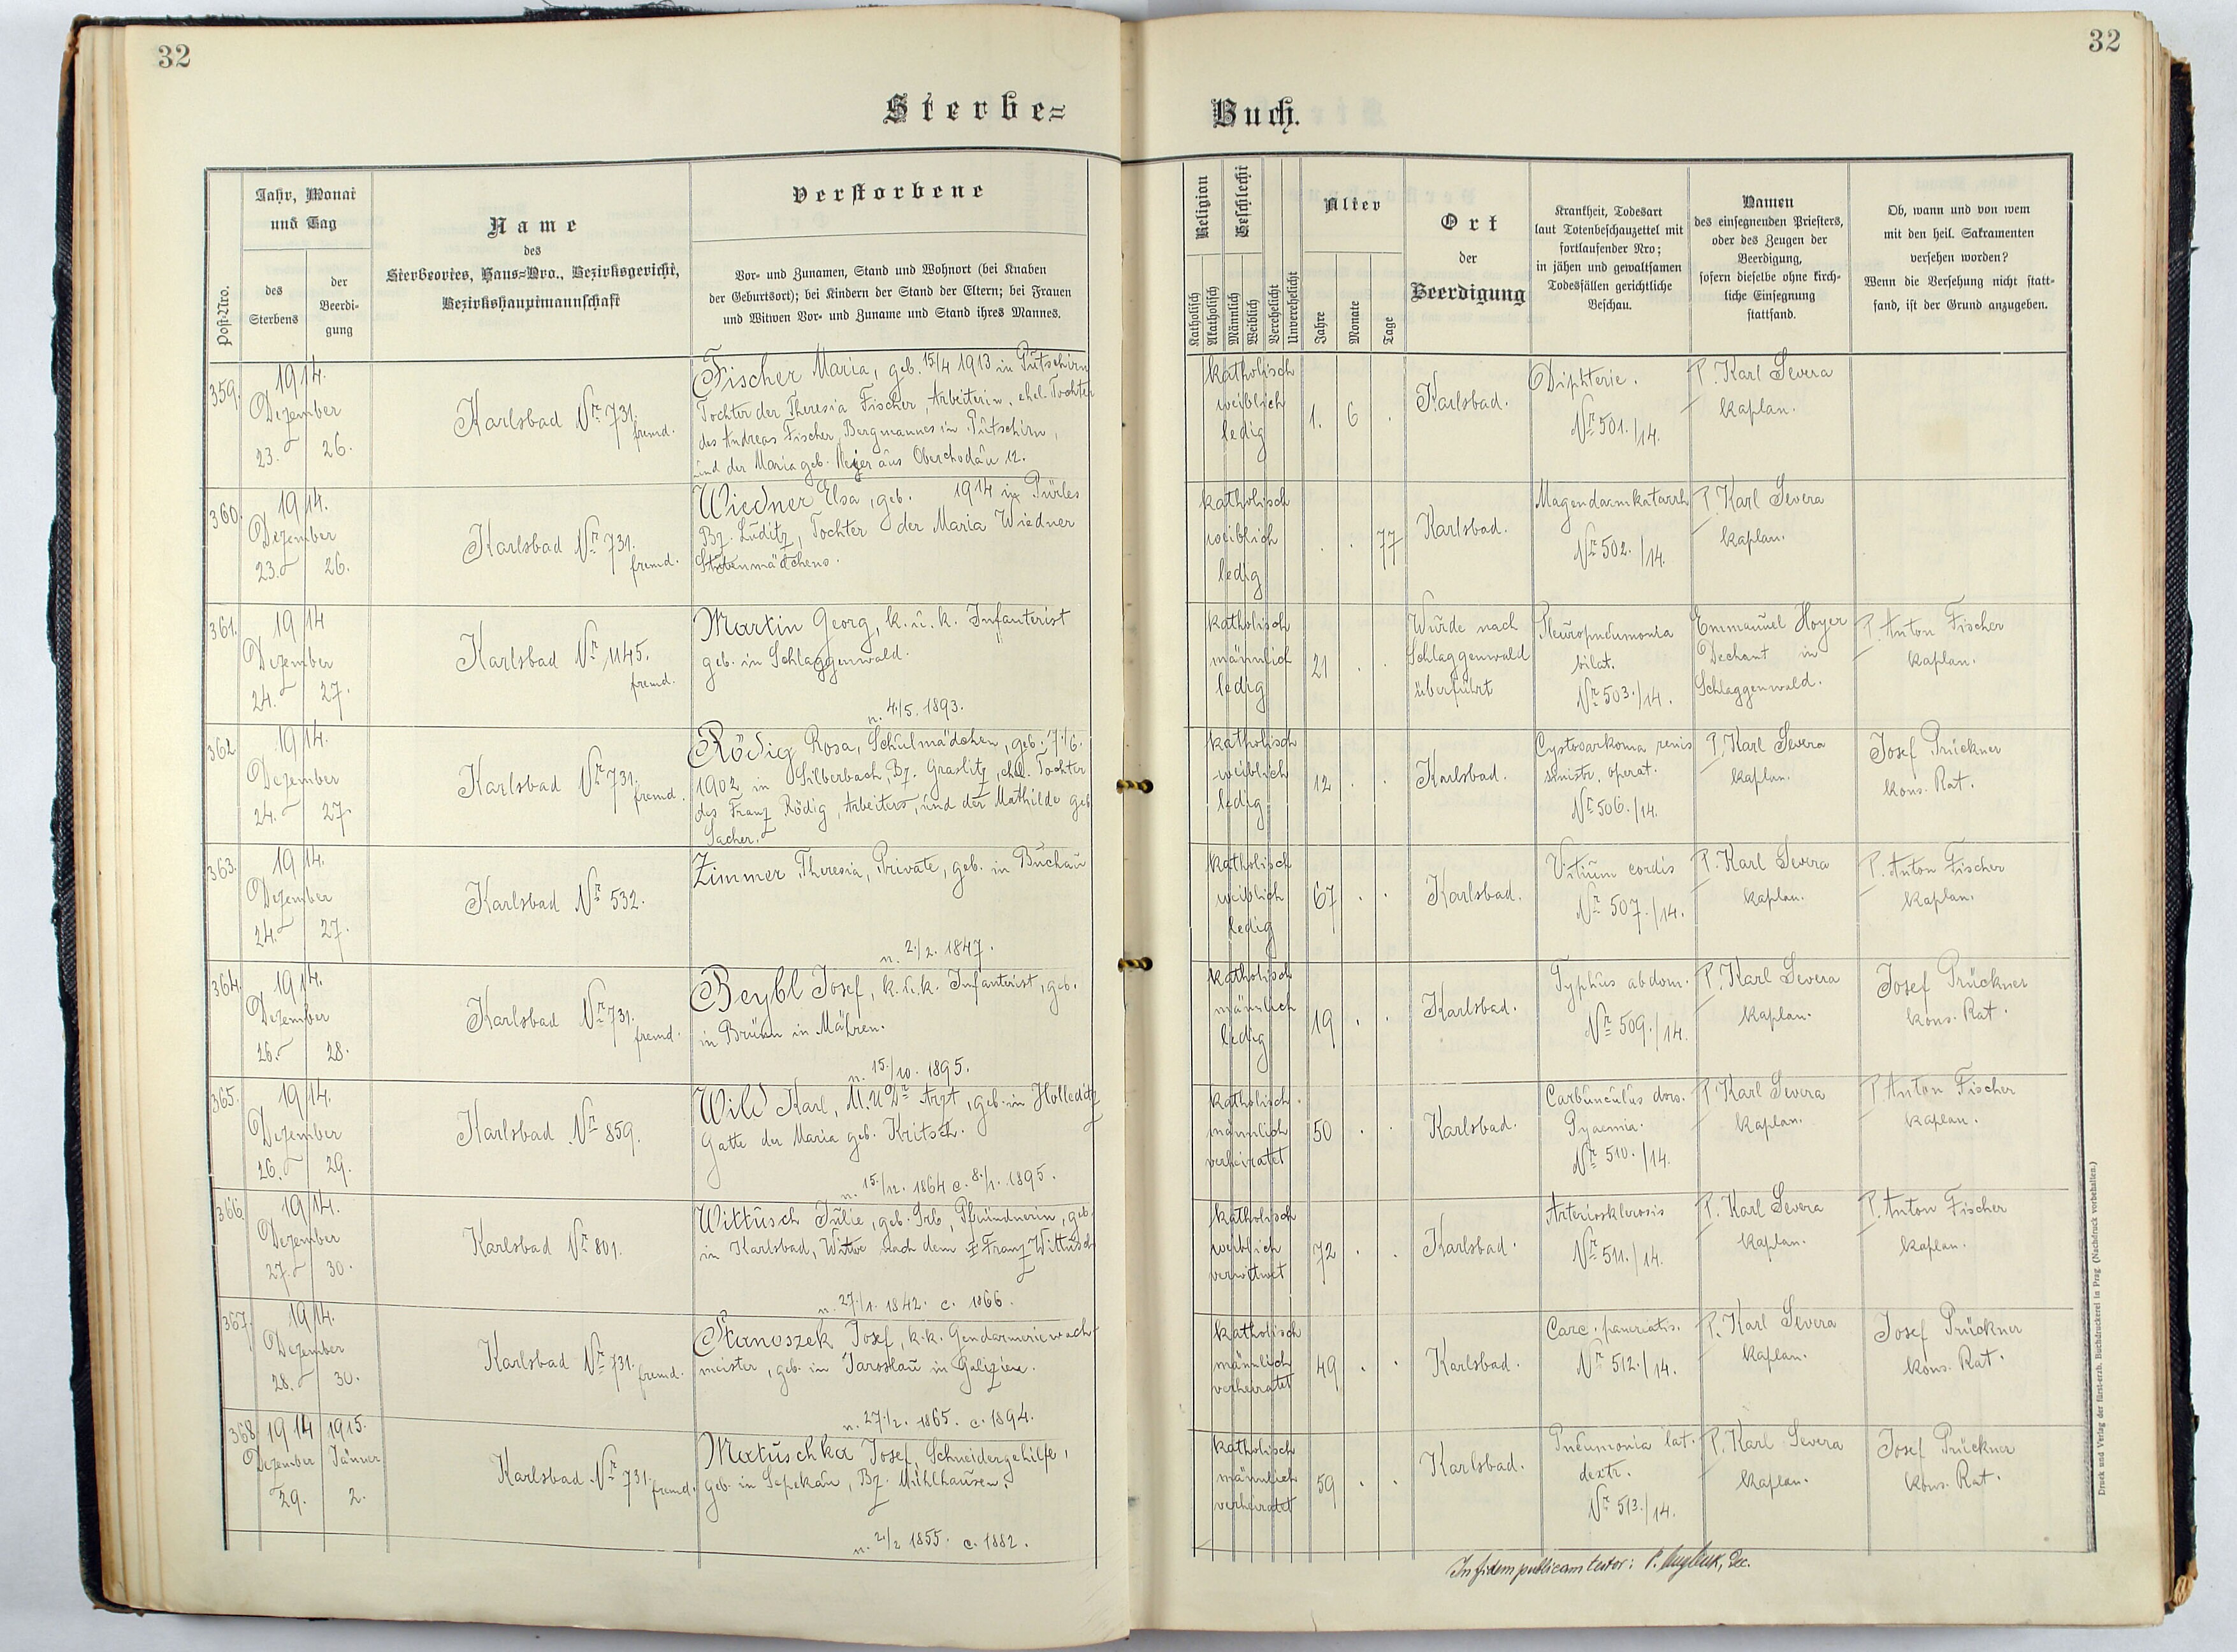 32
32
Sterbe=
Buch.
Post-Nro.
Jahr, Monat
und Tag
des
Sterbens
der
Beerdi-
gung
Name
des
Sterbeortes, Haus=Nro., Bezirksgericht,
Bezirkshauptmannschaft
Verstorbene
Vor- und Zunamen, Stand und Wohnort (bei Knaben
der Geburtsort); bei Kindern der Stand der Eltern; bei Frauen
und Witwen Vor- und Zuname und Stand ihres Mannes.
Religion
Katholisch
Akatholisch
Geschlecht
Männlich
Weiblich
Verehelicht
Unverehelicht
Alter
Jahre
Monate
Tage
Ort
der
Beerdigung
Krankheit, Todesart
laut Totenbeschauzettel mit
fortlaufender Nro;
in jähen und gewaltsamen
Todesfällen gerichtliche
Beschau.
Namen
des einsegnenden Priesters,
oder des Zeugen der
Beerdigung,
sofern dieselbe ohne kirch-
liche Einsegnung
stattfand.
Ob, wann und von wem
mit den heil. Sakramenten
versehen worden?
Wenn die Versehung nicht statt-
fand, ist der Grund anzugeben.
359.
1914.
Dezember
23. 26.
Karlsbad Nr. 731.
fremd.
Fischer Maria, geb. 15/4 1913 in Putschirn
Tochter der Theresia Fischer, Arbeiterin, ehel. Tochter
des Andreas Fischer, Bergmannes in Putschirn,
und der Maria geb. aus Oberchodau 12.
katholisch
weiblich
ledig
1. 6 .
Karlsbad.
Diphterie.
Nr 501./14.
P. Karl Severa
kaplan.
360.
1914.
Dezember
23. 26.
Karlsbad Nr 731.
fremd.
Wiedner Elsa, geb. 1914 in Pürles
Bz. Luditz, Tochter der Maria Wiedner
Stubenmädchens.
katholisch
weiblich
ledig
. . 77
Karlsbad.
Magendarmkatarrh
Nr 502./14.
P. Karl Severa
kaplan.
361.
1914
Dezember
24. 27.
Karlsbad Nr 1145.
fremd.
Martin Georg, k. u. k. Infanterist
geb. in Schlaggenwald.
n. 4./5. 1893.
katholisch
männlich
ledig
21 . .
Wurde nach
Schlaggenwald
überführt
Pleuropneumonia
bilat.
Nr 503./14.
Emmanuel Hoyer
Dechant in
Schlaggenwald.
P. Anton Fischer
kaplan.
362
1914.
Dezember
24. 27.
Karlsbad Nr 731.
fremd.
Rödig Rosa, Schulmädchen, geb. 17./6.
1902 in Silberbach, Bz. Graslitz, ehel. Tochter
des Franz Rödig, Arbeiters, und der Mathilde geb
Sacher.
katholisch
weiblich
ledig
12 . .
Karlsbad.
Cystosarkoma renis
sinistr. operat.
Nr 506./14.
P. Karl Severa
kaplan.
Josef Prückner
kons. Rat.
363.
1914.
Dezember
24. 27.
Karlsbad Nr 532.
Zimmer Theresia, Private, geb. in Buchau
n. 2./2. 1847.
katholisch
weiblich
ledig
67 . .
Karlsbad.
Vitium cordis
Nr 507./14.
P. Karl Severa
kaplan.
P. Anton Fischer
kaplan.
364.
1914.
Dezember
26. 28.
Karlsbad Nr 731.
fremd.
Beybl Josef, k.u.k. Infanterist, geb.
in Brünn in Mähren.
n. 15./10. 1895.
katholisch
männlich
ledig
19 . .
Karlsbad.
Typhus abdom.
Nr 509./14.
P. Karl Severa
kaplan.
Josef Prückner
kons. Rat.
365.
1914.
Dezember
26. 29.
Karlsbad Nr 859.
Wild Karl, M.U.Dr Arzt, geb. in Holleditz
Gatte der Maria geb. Kritsch.
n. 15./12. 1864 c. 8./1. 1895.
katholisch.
männlich
verheiratet
50 . .
Karlsbad.
Carbunculus dors.
Pyaemia.
Nr 510./14.
P. Karl Severa
kaplan.
P. Anton Fischer
kaplan.
366.
1914.
Dezember
27. 30.
Karlsbad Nr 801.
Wittusch Julie, geb. Irb, Pfründnerin, geb.
in Karlsbad, Witwe nach dem † Franz Wittusch
n. 27./1. 1842. c. 1866.
katholisch
weiblich
verwitwet
72 . .
Karlsbad.
Arteriosklerosis
Nr 511./14.
P. Karl Severa
kaplan.
P. Anton Fischer
kaplan.
367.
1914.
Dezember
28. 30.
Karlsbad Nr 731.
fremd.
Stanoszek Josef, k.k. Gendarmeriewach-
meister, geb. in Jaroslau in Galizien.
n. 27./2. 1865. c. 1894.
katholisch
männlich
verheiratet
49 . .
Karlsbad.
Carc. pancreatis.
Nr 512./14.
P. Karl Severa
kaplan.
Josef Prückner
kons. Rat.
368
1914 1915.
Dezember Jänner
29. 2.
Karlsbad Nr 731.
fremd.
Matuschka Josef, Schneidergehilfe,
geb. in Sepekau, Bz. Mühlhausen.
n. 2/2 1855. c. 1882.
katholisch
männlich
verheiratet
59 . .
Karlsbad.
Pneumonia lat.
dextr.
Nr 513./14.
P. Karl Severa
kaplan.
Josef Prückner
kons. Rat.
In fidem publicam testor: P.
Druck und Verlag der fürst-erzb. Buchdruckerei in Prag (Nachdruck vorbehalten.)